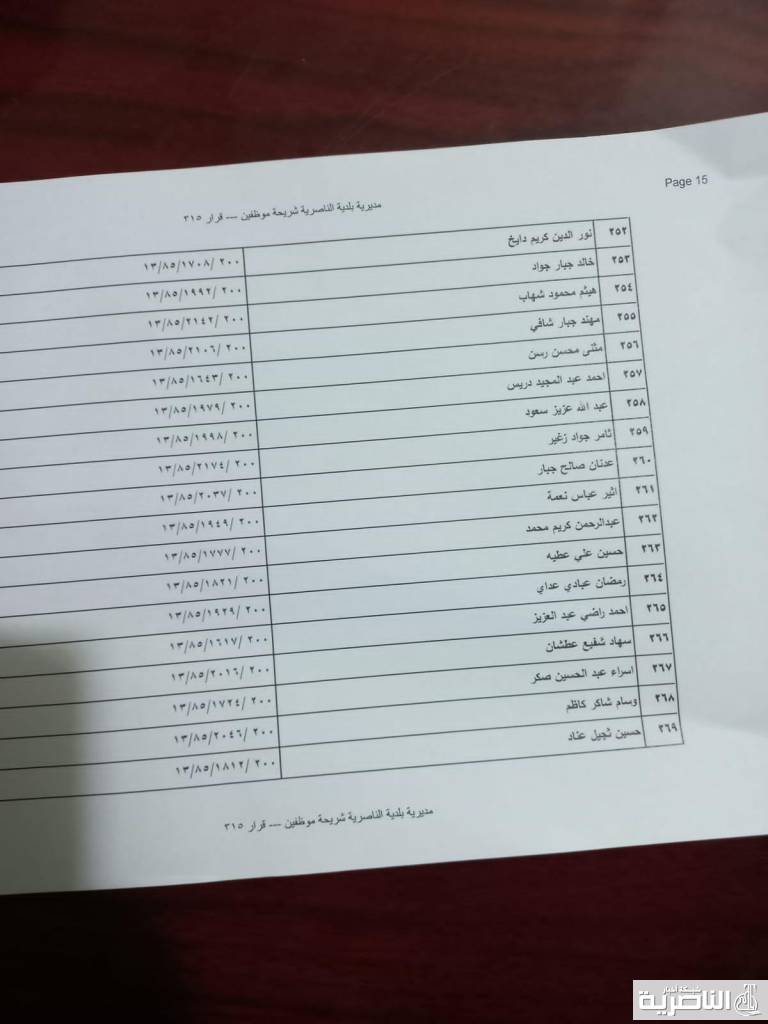 Page 15
مديرية بلدية الناصرية شريحة موظفين — قرار ٣١٥
٢٥٢ نور الدين كريم دايخ ١٣/٨٥/١٧٠٨/ ٢٠٠
٢٥٣ خالد جبار جواد ١٣/٨٥/١٩٩٢/ ٢٠٠
٢٥٤ هيثم محمود شهاب ١٣/٨٥/٢١٤٢/ ٢٠٠
٢٥٥ مهند جبار شافي ١٣/٨٥/٢١٠٦/ ٢٠٠
٢٥٦ مثنى محسن رسن ١٣/٨٥/١٦٤٣/ ٢٠٠
٢٥٧ احمد عبد المجيد دريس ١٣/٨٥/١٩٧٩/ ٢٠٠
٢٥٨ عبد الله عزيز سعود ١٣/٨٥/١٩٩٨/ ٢٠٠
٢٥٩ ثامر جواد زغير ١٣/٨٥/٢١٧٤/ ٢٠٠
٢٦٠ عدنان صالح جبار ١٣/٨٥/٢٠٣٧/ ٢٠٠
٢٦١ اثير عباس نعمة ١٣/٨٥/١٩٤٩/ ٢٠٠
٢٦٢ عبدالرحمن كريم محمد ١٣/٨٥/١٧٧٧/ ٢٠٠
٢٦٣ حسين علي عطيه ١٣/٨٥/١٨٢١/ ٢٠٠
٢٦٤ رمضان عبادي عداي ١٣/٨٥/١٩٢٩/ ٢٠٠
٢٦٥ احمد راضي عبد العزيز ١٣/٨٥/١٦١٧/ ٢٠٠
٢٦٦ سهاد شفيع عطشان ١٣/٨٥/٢٠١٦/ ٢٠٠
٢٦٧ اسراء عبد الحسين صكر ١٣/٨٥/١٧٢٤/ ٢٠٠
٢٦٨ وسام شاكر كاظم ١٣/٨٥/٢٠٤٦/ ٢٠٠
٢٦٩ حسين ثجيل عناد ١٣/٨٥/١٨١٢/ ٢٠٠
مديرية بلدية الناصرية شريحة موظفين — قرار ٣١٥
شبكة أخبار
الناصرية